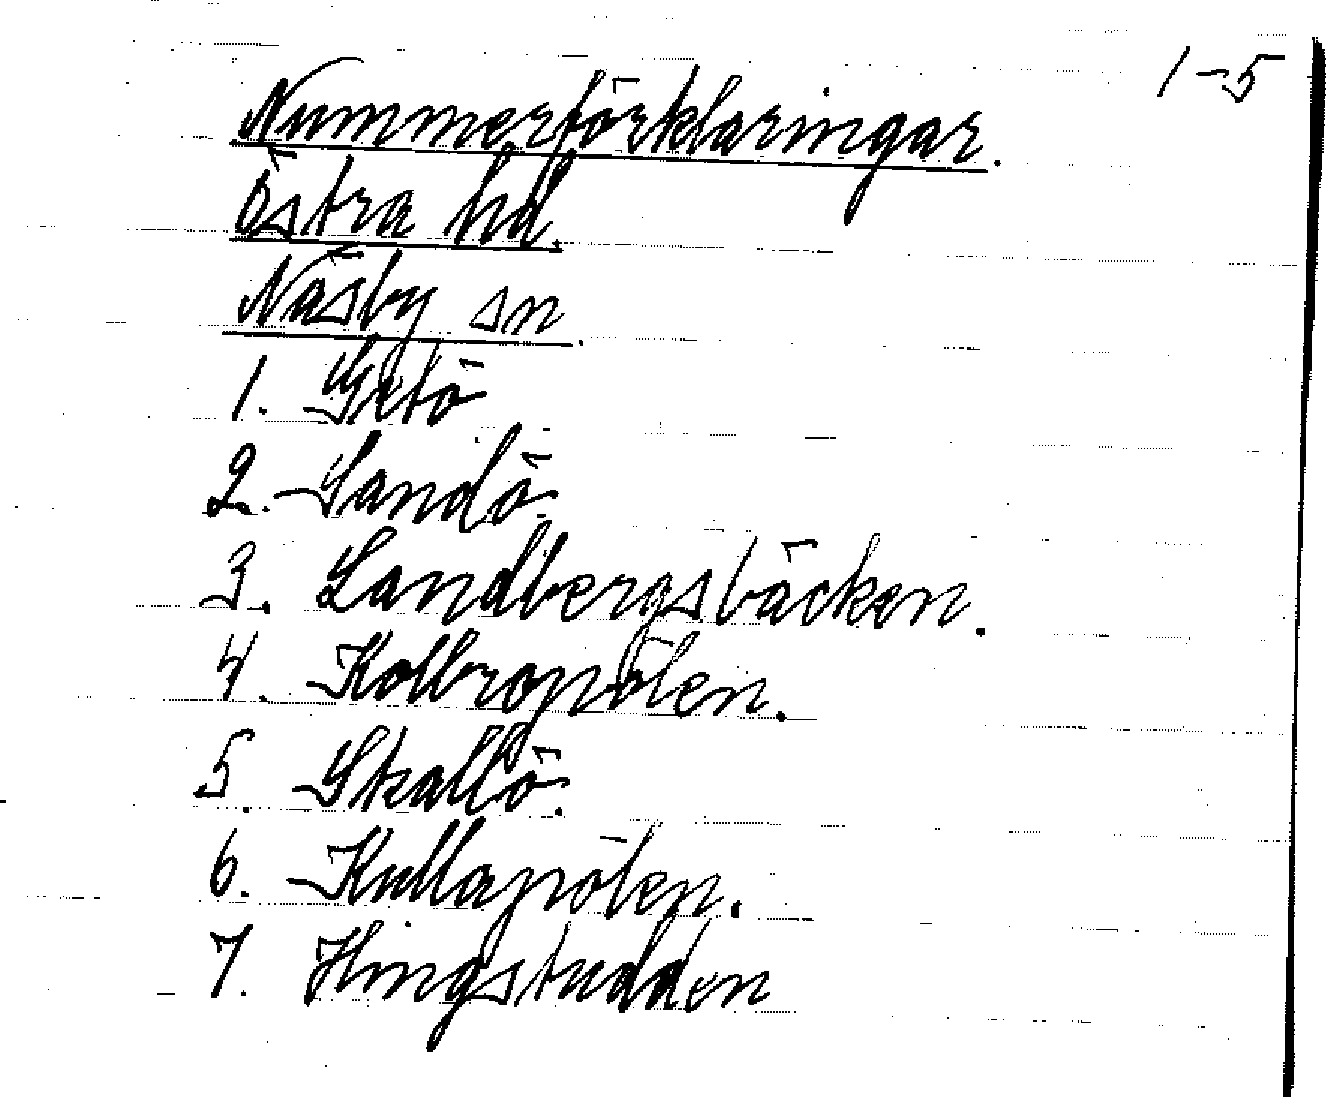 1-5
Nummerförklaringar.
Östra hd.
Näsby sn.
1. Getö
2. Sandö.
3. Sandbergsbäcken.
4. Kolbropölen.
5. Skallö.
6. Kullapölen.
7. Hingstudden